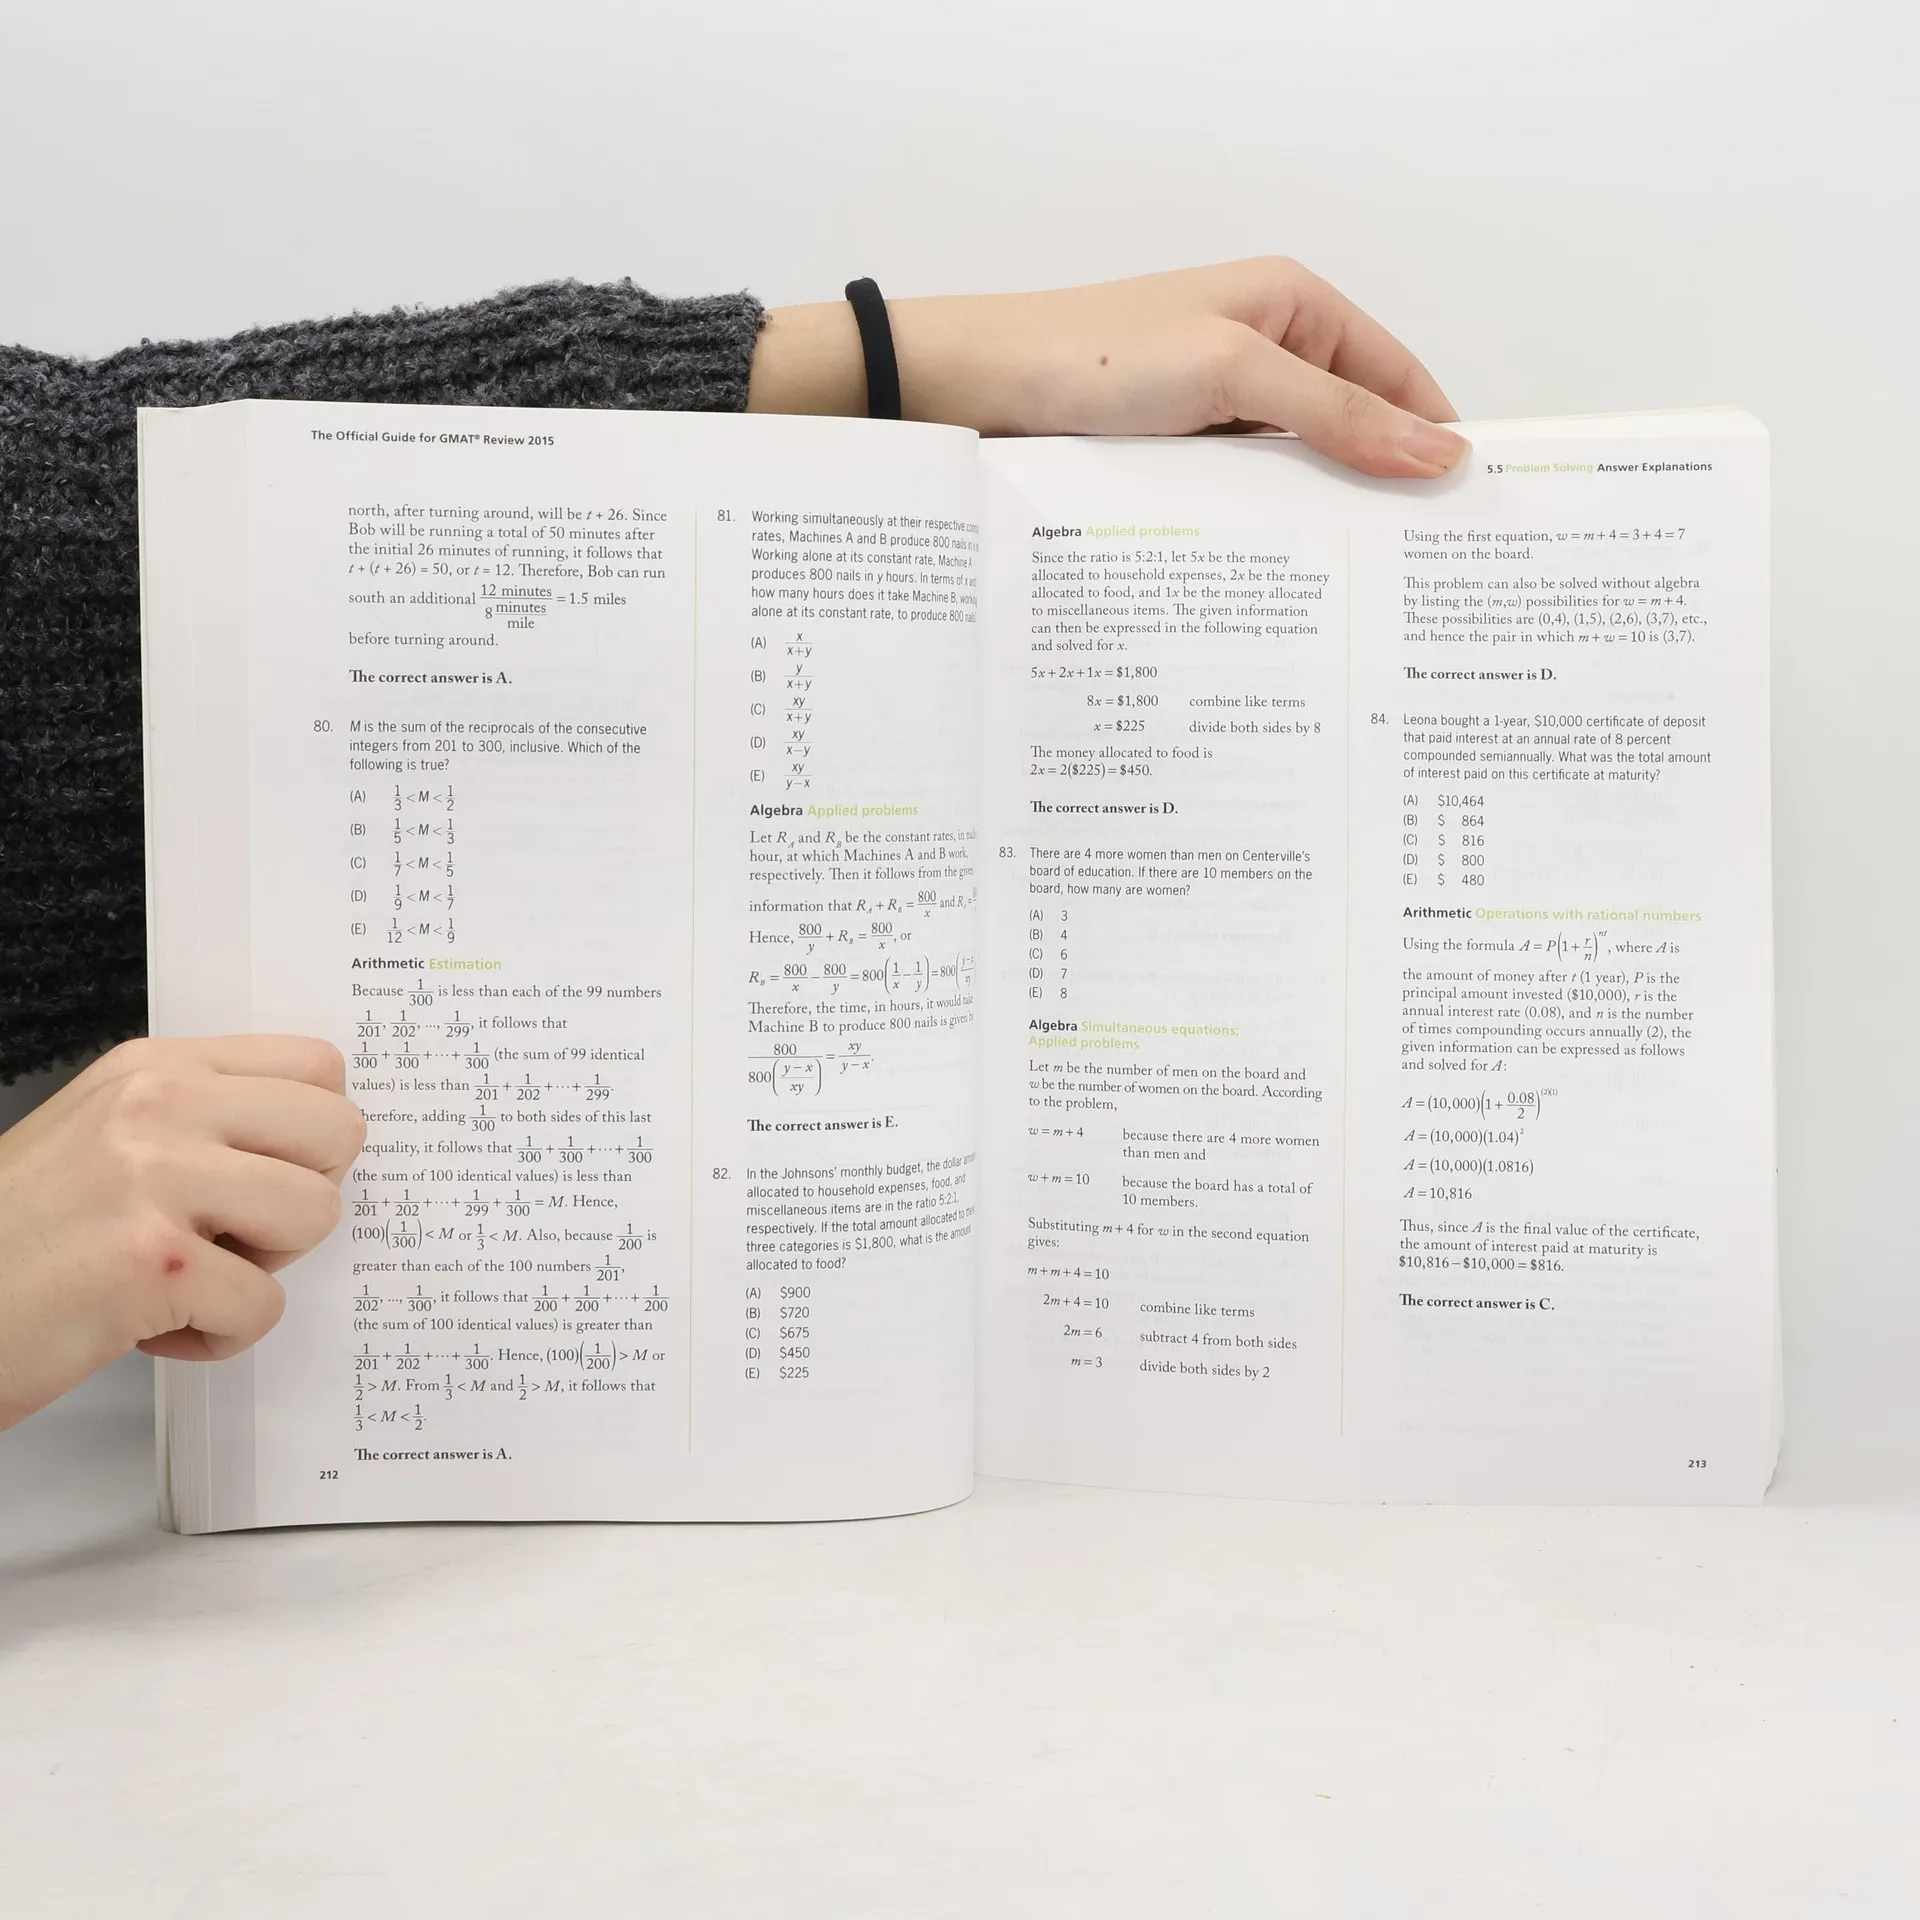 The Official Guide for GMAT® Review 2015
north, after turning around, will be t + 26. Since
Bob will be running a total of 50 minutes after
the initial 26 minutes of running, it follows that
t + (t + 26) = 50, or t = 12. Therefore, Bob can run
south an additional 12 minutes / 8 minutes/mile = 1.5 miles
before turning around.
The correct answer is A.
80. M is the sum of the reciprocals of the consecutive
integers from 201 to 300, inclusive. Which of the
following is true?
(A) 1/3 < M < 1/2
(B) 1/5 < M < 1/3
(C) 1/7 < M < 1/5
(D) 1/9 < M < 1/7
(E) 1/12 < M < 1/9
Arithmetic Estimation
Because 1/300 is less than each of the 99 numbers
1/201, 1/202, ..., 1/299, it follows that
1/300 + 1/300 + ··· + 1/300 (the sum of 99 identical
values) is less than 1/201 + 1/202 + ··· + 1/299.
adding 1/300 to both sides of this last
it follows that 1/300 + 1/300 + ··· + 1/300
(the sum of 100 identical values) is less than
1/201 + 1/202 + ··· + 1/299 + 1/300 = M. Hence,
(100)(1/300) < M or 1/3 < M. Also, because 1/200 is
greater than each of the 100 numbers 1/201,
1/202, ..., 1/300, it follows that 1/200 + 1/200 + ··· + 1/200
(the sum of 100 identical values) is greater than
1/201 + 1/202 + ··· + 1/300. Hence, (100)(1/200) > M or
1/2 > M. From 1/3 < M and 1/2 > M, it follows that
1/3 < M < 1/2.
The correct answer is A.
212
81. Working simultaneously at their respective
rates, Machines A and B produce 800 nails in
Working alone at its constant rate, Machine A
produces 800 nails in y hours. In terms of x and
how many hours does it take Machine B,
alone at its constant rate, to produce 800
(A) x/x+y
(B) y/x+y
(C) xy/x+y
(D) xy/x−y
(E) xy/y−x
Algebra Applied problems
Let R_A and R_B be the constant rates, in
hour, at which Machines A and B work,
respectively. Then it follows from the given
information that R_A + R_B = 800/x and
Hence, 800/y + R_B = 800/x, or
R_B = 800/x − 800/y = 800(1/x − 1/y) = 800
Therefore, the time, in hours, it would take
Machine B to produce 800 nails is given by
800 / 800(y−x/xy) = xy/y−x.
The correct answer is E.
82. In the Johnsons' monthly budget, the dollar
allocated to household expenses, food, and
miscellaneous items are in the ratio 5:2:1,
respectively. If the total amount allocated to
three categories is $1,800, what is the amount
allocated to food?
(A) $900
(B) $720
(C) $675
(D) $450
(E) $225
5.5 Problem Solving Answer Explanations
Algebra Applied problems
Since the ratio is 5:2:1, let 5x be the money
allocated to household expenses, 2x be the money
allocated to food, and 1x be the money allocated
to miscellaneous items. The given information
can then be expressed in the following equation
and solved for x.
5x + 2x + 1x = $1,800
8x = $1,800 combine like terms
x = $225 divide both sides by 8
The money allocated to food is
2x = 2($225) = $450.
The correct answer is D.
83. There are 4 more women than men on Centerville's
board of education. If there are 10 members on the
board, how many are women?
(A) 3
(B) 4
(C) 6
(D) 7
(E) 8
Algebra Simultaneous equations;
Applied problems
Let m be the number of men on the board and
w be the number of women on the board. According
to the problem,
w = m + 4 because there are 4 more women
than men and
w + m = 10 because the board has a total of
10 members.
Substituting m + 4 for w in the second equation
gives:
m + m + 4 = 10
2m + 4 = 10 combine like terms
2m = 6 subtract 4 from both sides
m = 3 divide both sides by 2
Using the first equation, w = m + 4 = 3 + 4 = 7
women on the board.
This problem can also be solved without algebra
by listing the (m,w) possibilities for w = m + 4.
These possibilities are (0,4), (1,5), (2,6), (3,7), etc.,
and hence the pair in which m + w = 10 is (3,7).
The correct answer is D.
84. Leona bought a 1-year, $10,000 certificate of deposit
that paid interest at an annual rate of 8 percent
compounded semiannually. What was the total amount
of interest paid on this certificate at maturity?
(A) $10,464
(B) $ 864
(C) $ 816
(D) $ 800
(E) $ 480
Arithmetic Operations with rational numbers
Using the formula A = P(1 + r/n)^nt, where A is
the amount of money after t (1 year), P is the
principal amount invested ($10,000), r is the
annual interest rate (0.08), and n is the number
of times compounding occurs annually (2), the
given information can be expressed as follows
and solved for A:
A = (10,000)(1 + 0.08/2)^(2)(1)
A = (10,000)(1.04)²
A = (10,000)(1.0816)
A = 10,816
Thus, since A is the final value of the certificate,
the amount of interest paid at maturity is
$10,816 − $10,000 = $816.
The correct answer is C.
213